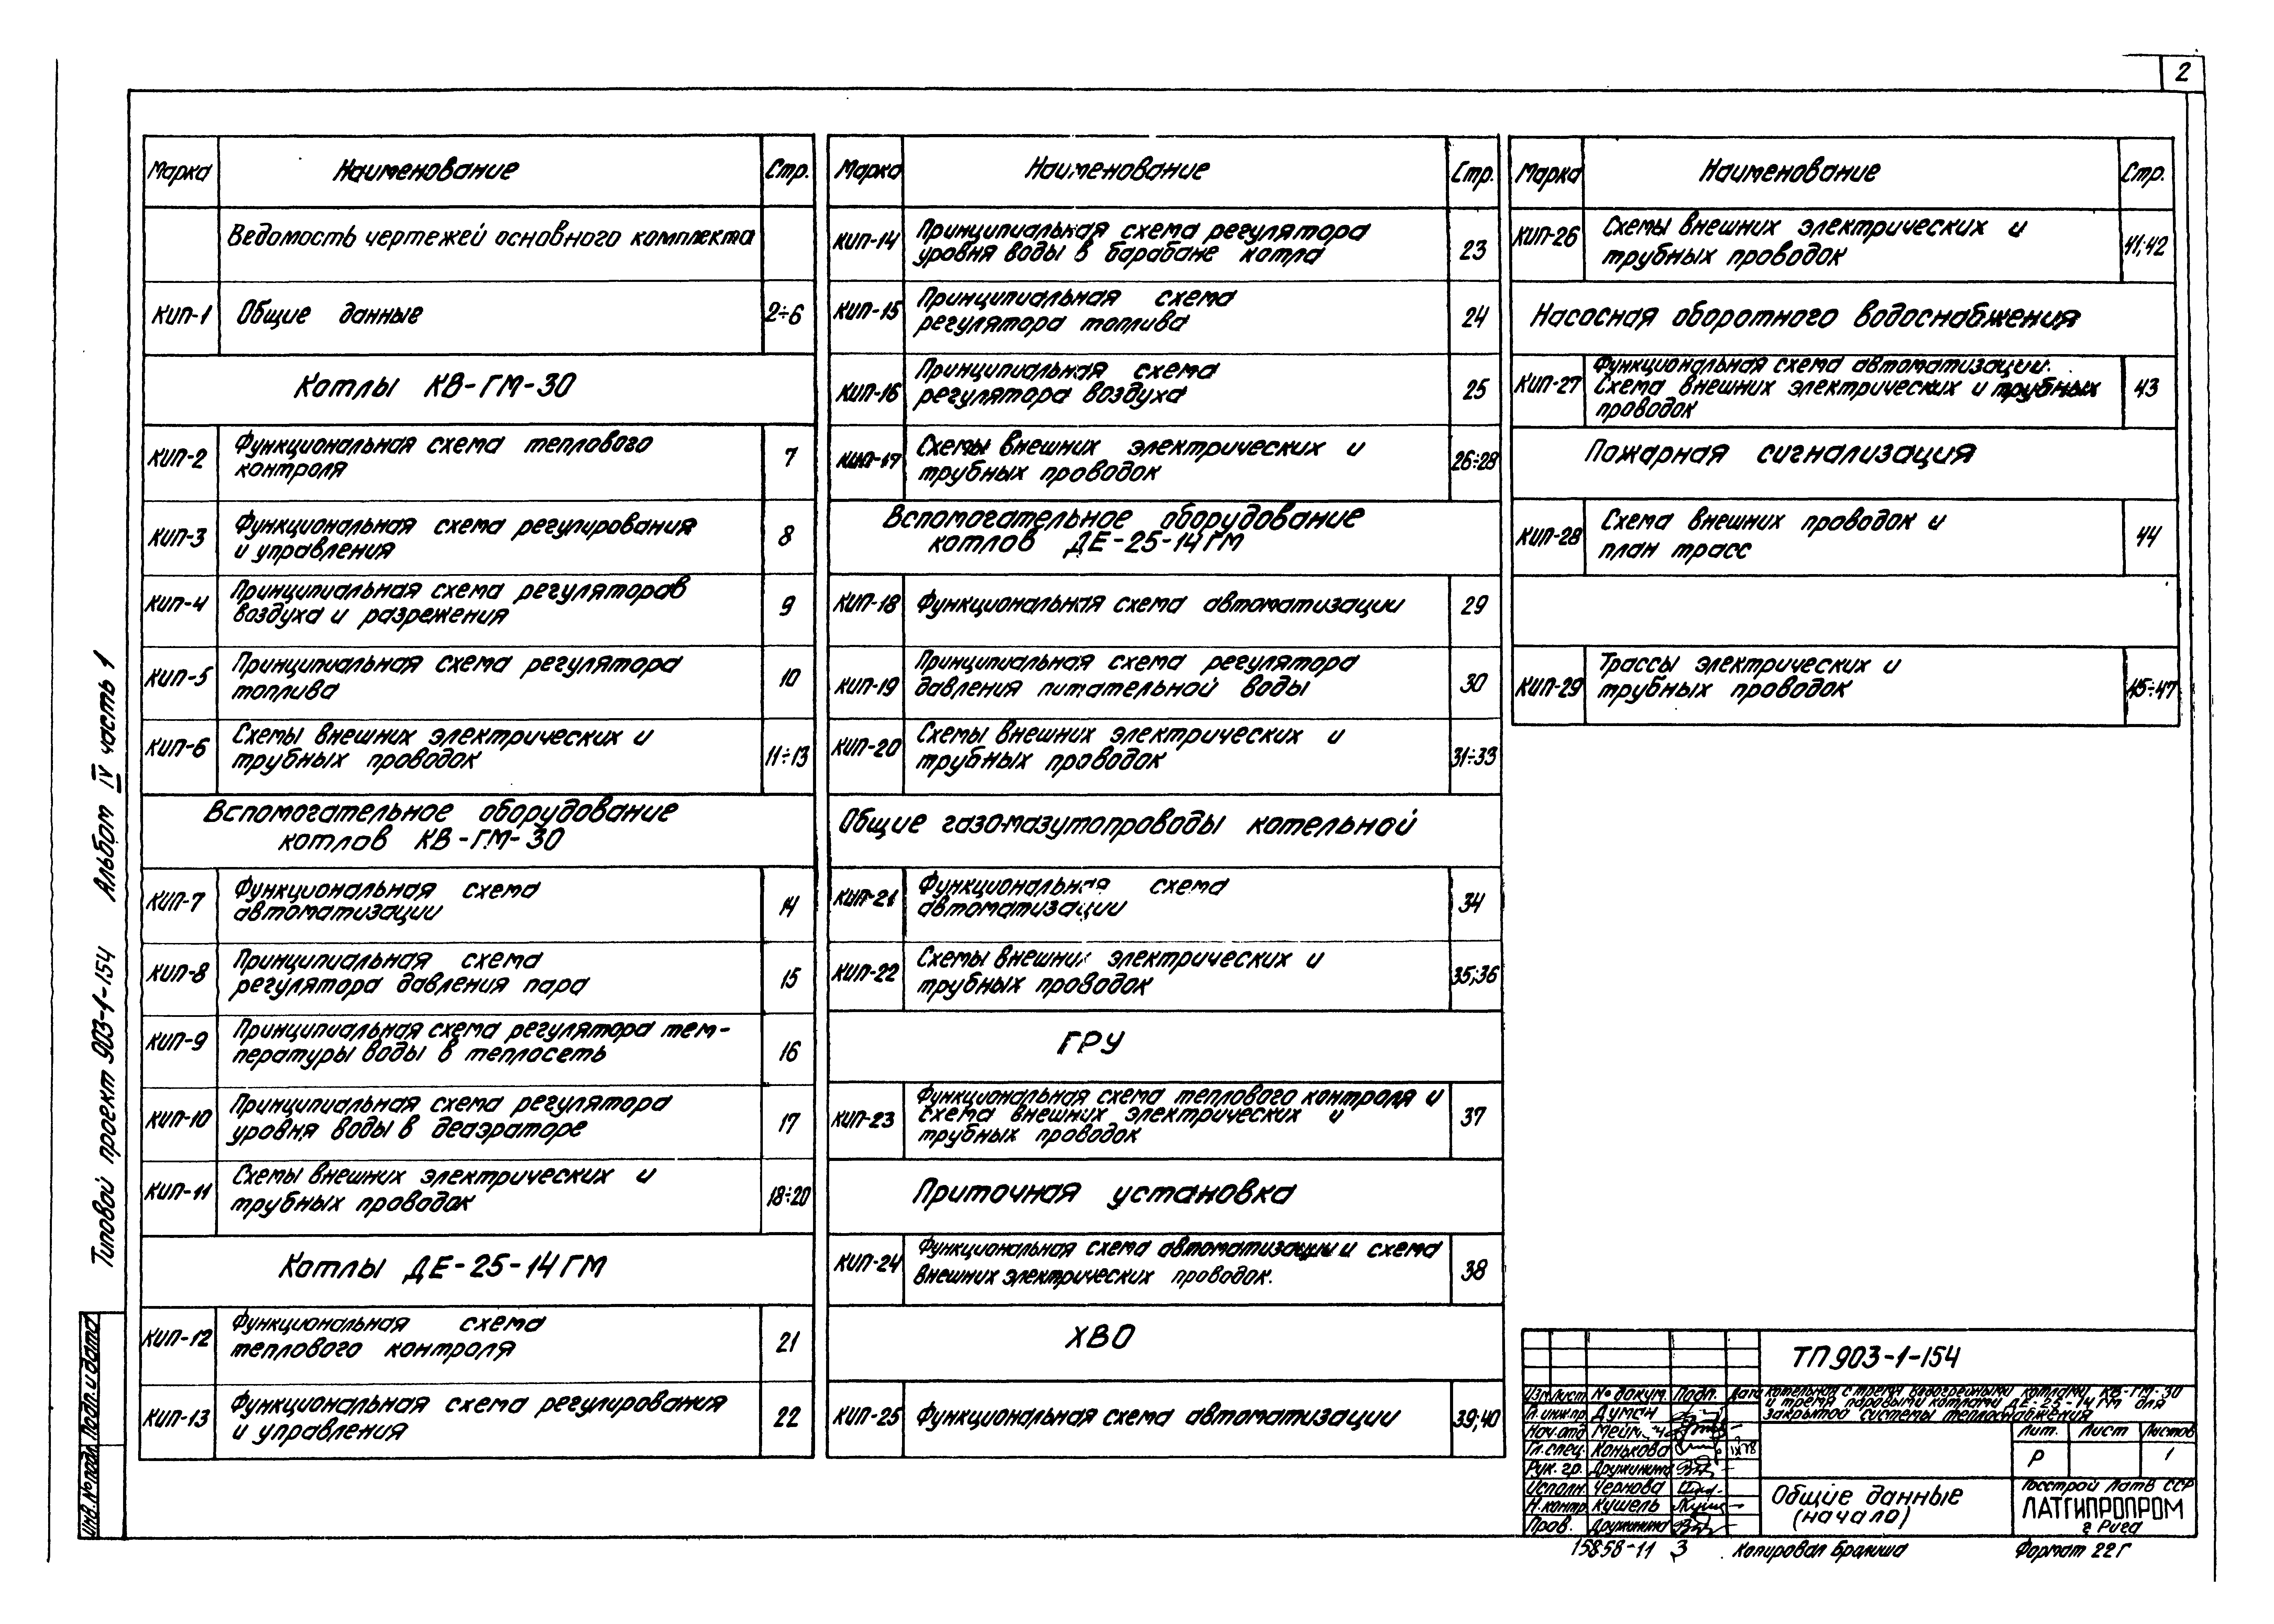 2
Марка Наименование Стр.
Ведомость чертежей основного комплекта
КИП-1 Общие данные 2÷6
Котлы КВ-ГМ-30
КИП-2 Функциональная схема теплового
контроля 7
КИП-3 Функциональная схема регулирования
и управления 8
КИП-4 Принципиальная схема регуляторов
воздуха и разрежения 9
КИП-5 Принципиальная схема регулятора
топлива 10
КИП-6 Схемы внешних электрических и
трубных проводок 11÷13
Вспомогательное оборудование
котлов КВ-ГМ-30
КИП-7 Функциональная схема
автоматизации 14
КИП-8 Принципиальная схема
регулятора давления пара 15
КИП-9 Принципиальная схема регулятора тем-
пературы воды в теплосеть 16
КИП-10 Принципиальная схема регулятора
уровня воды в деаэраторе 17
КИП-11 Схемы внешних электрических и
трубных проводок 18÷20
Котлы ДЕ-25-14ГМ
КИП-12 Функциональная схема
теплового контроля 21
КИП-13 Функциональная схема регулирования
и управления 22
Марка Наименование Стр.
КИП-14 Принципиальная схема регулятора
уровня воды в барабане котла 23
КИП-15 Принципиальная схема
регулятора топлива 24
КИП-16 Принципиальная схема
регулятора воздуха 25
КИП-17 Схемы внешних электрических и
трубных проводок 26÷28
Вспомогательное оборудование
котлов ДЕ-25-14ГМ
КИП-18 Функциональная схема автоматизации 29
КИП-19 Принципиальная схема регулятора
давления питательной воды 30
КИП-20 Схемы внешних электрических и
трубных проводок 31÷33
Общие газомазутопроводы котельной
КИП-21 Функциональная схема
автоматизации 34
КИП-22 Схемы внешних электрических и
трубных проводок 35;36
ГРУ
КИП-23 Функциональная схема теплового контроля и
схема внешних электрических и
трубных проводок 37
Приточная установка
КИП-24 Функциональная схема автоматизации и схема
внешних электрических проводок. 38
ХВО
КИП-25 Функциональная схема автоматизации 39;40
Марка Наименование Стр.
КИП-26 Схемы внешних электрических и
трубных проводок 41;42
Насосная оборотного водоснабжения
КИП-27 Функциональная схема автоматизации.
Схема внешних электрических и трубных
проводок 43
Пожарная сигнализация
КИП-28 Схема внешних проводок и
план трасс 44
КИП-29 Трассы электрических и
трубных проводок 45÷47
Типовой проект 903-1-154 Альбом IV часть 1
Инв.№подл. Подп. и дата
ТП 903-1-154
Изм. Лист № докум. Подп. Дата
Котельная с тремя водогрейными котлами КВ-ГМ-30
и тремя паровыми котлами ДЕ-25-14ГМ для
закрытой системы теплоснабжения
Гл. инж. пр. Думан
Нач. отд.
Гл. спец. Конькова
Рук. гр. Дружинина
Исполн. Чернова
Н. контр. Кушель
Пров. Дружинина
Лит. Лист Листов
Р 1
Общие данные
(начало)
Госстрой Латв ССР
ЛАТГИПРОПРОМ
г Рига
15858-11 3 Копировал Формат 22Г